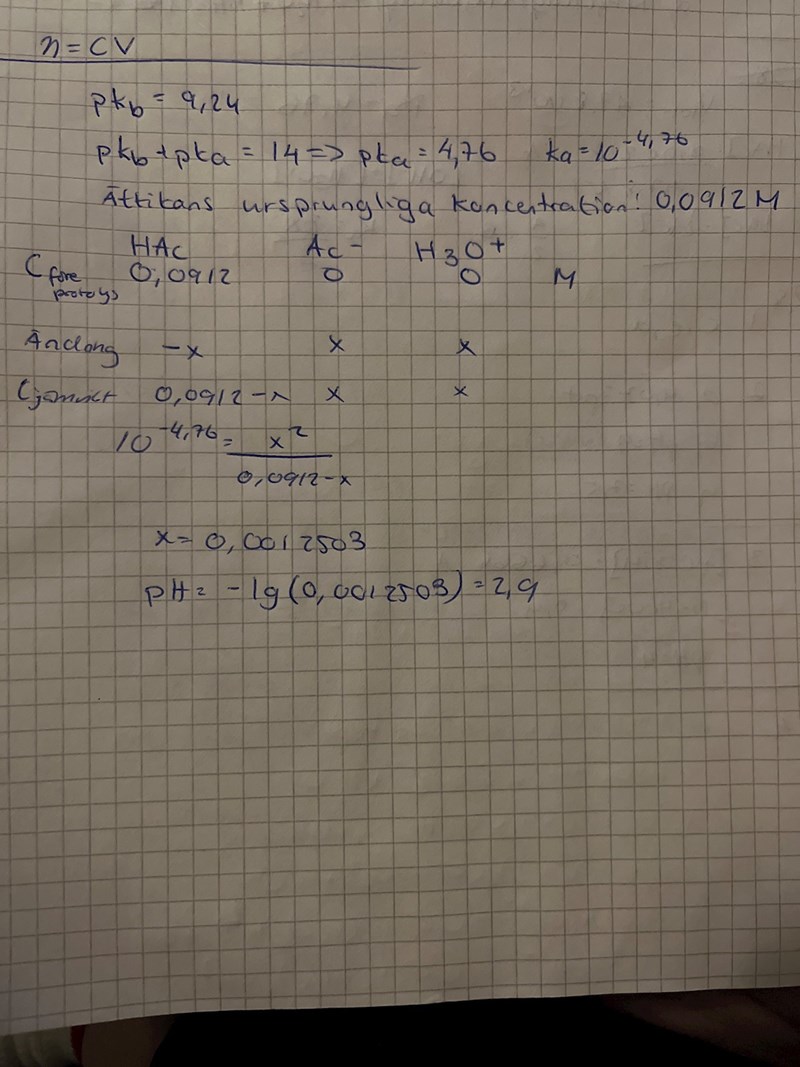 n = CV
pkb = 9,24
pkb + pka = 14 => pka = 4,76 ka = 10^-4,76
Ättikans ursprungliga koncentration: 0,0912 M
HAc Ac- H3O+
Cföre protolys 0,0912 0 0 M
Ändong -x x x
Cjämvict 0,0912-x x x
10^-4,76 = x^2 / 0,0912-x
x = 0,0012503
pH = -lg(0,0012503) = 2,9